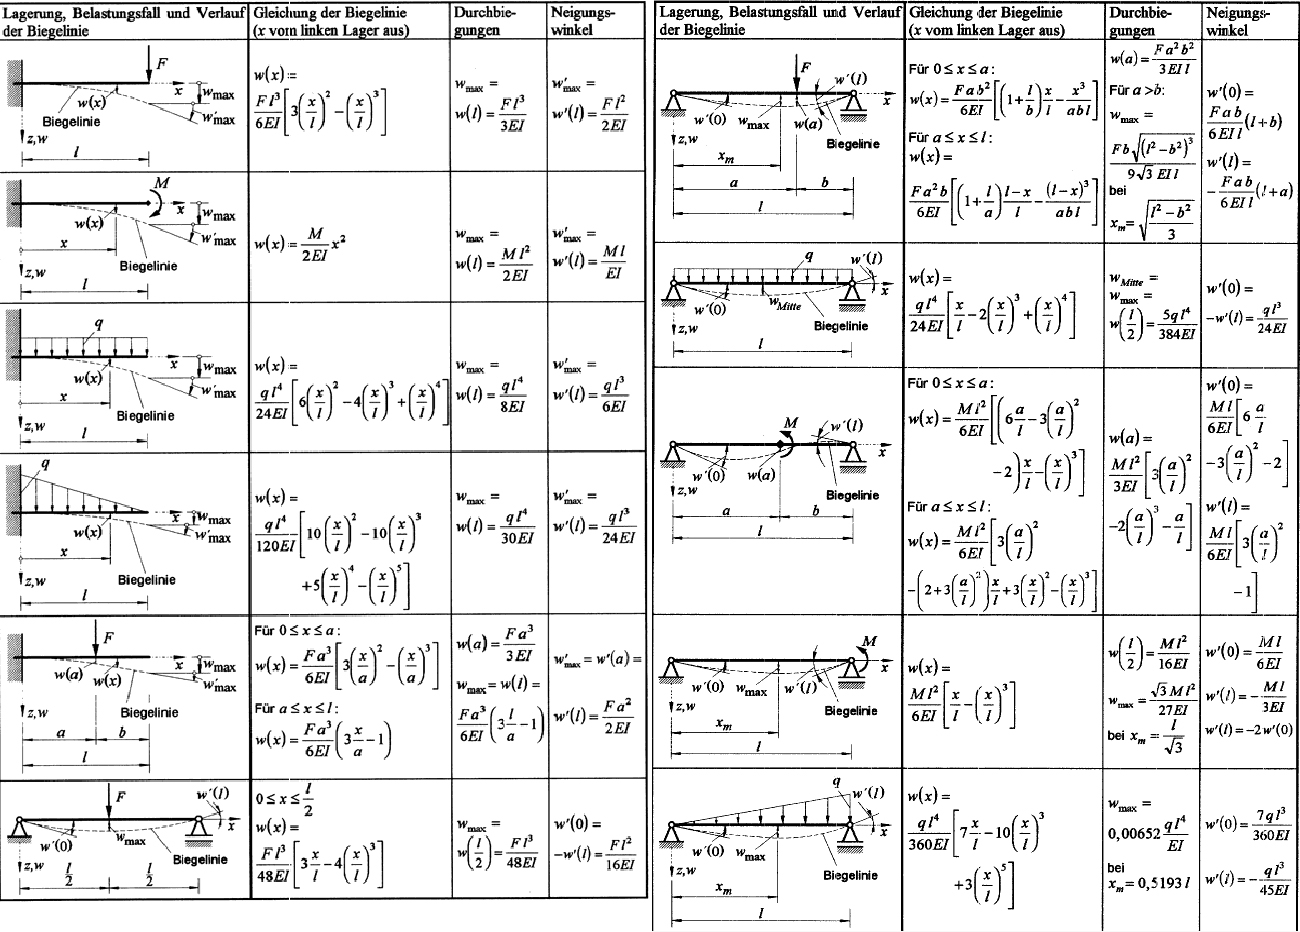 Lagerung, Belastungsfall und Verlauf der Biegelinie
Gleichung der Biegelinie (x vom linken Lager aus)
Durchbie-gungen
Neigungs-winkel
F
x
w(x)
Biegelinie
w_max
w'_max
z,w
l
w(x) =
Fl³/6EI [3(x/l)² − (x/l)³]
w_max =
w(l) = Fl³/3EI
w'_max =
w'(l) = Fl²/2EI
M
x
w(x)
w_max
w'max
x
Biegelinie
z,w
l
w(x) = M/2EI x²
w_max =
w(l) = Ml²/2EI
w'_max =
w'(l) = Ml/EI
q
x
w(x)
w_max
w'max
x
Biegelinie
z,w
l
w(x) =
ql⁴/24EI [6(x/l)² − 4(x/l)³ + (x/l)⁴]
w_max =
w(l) = ql⁴/8EI
w'_max =
w'(l) = ql³/6EI
q
x
w(x)
w_max
w'max
x
Biegelinie
z,w
l
w(x) =
ql⁴/120EI [10(x/l)² − 10(x/l)³
+5(x/l)⁴ − (x/l)⁵]
w_max =
w(l) = ql⁴/30EI
w'_max =
w'(l) = ql³/24EI
F
x
w(a)
w(x)
w_max
w'max
Biegelinie
z,w
a
b
l
Für 0≤x≤a:
w(x) = Fa³/6EI [3(x/a)² − (x/a)³]
Für a≤x≤l:
w(x) = Fa³/6EI (3 x/a − 1)
w(a) = Fa³/3EI
w_max = w(l) =
Fa³/6EI (3 l/a − 1)
w'_max = w'(a) =
w'(l) = Fa²/2EI
F
w'(l)
x
w'(0)
w_max
Biegelinie
z,w
l/2
l/2
0≤x≤l/2
w(x) =
Fl³/48EI [3 x/l − 4(x/l)³]
w_max =
w(l/2) = Fl³/48EI
w'(0) =
−w'(l) = Fl²/16EI
Lagerung, Belastungsfall und Verlauf der Biegelinie
Gleichung der Biegelinie (x vom linken Lager aus)
Durchbie-gungen
Neigungs-winkel
F
w'(l)
x
w'(0)
w_max
w(a)
Biegelinie
z,w
x_m
a
b
l
Für 0≤x≤a:
w(x) = Fab²/6EI [(1 + l/b) x/l − x³/abl]
Für a≤x≤l:
w(x) =
Fa²b/6EI [(1 + l/a) (l−x)/l − (l−x)³/abl]
w(a) = Fa²b²/3EIl
Für a>b:
w_max =
Fb√(l²−b²)³/9√3 EIl
bei
x_m = √((l²−b²)/3)
w'(0) =
Fab/6EIl (l+b)
w'(l) =
−Fab/6EIl (l+a)
q
w'(l)
x
w'(0)
w_Mitte
Biegelinie
z,w
l
w(x) =
ql⁴/24EI [x/l − 2(x/l)³ + (x/l)⁴]
w_Mitte =
w_max =
w(l/2) = 5ql⁴/384EI
w'(0) =
−w'(l) = ql³/24EI
M
w'(l)
x
w'(0)
w(a)
Biegelinie
z,w
a
b
l
Für 0≤x≤a:
w(x) = Ml²/6EI [(6 a/l − 3(a/l)²
−2) x/l − (x/l)³]
Für a≤x≤l:
w(x) = Ml²/6EI [3(a/l)²
−(2+3(a/l)²) x/l + 3(x/l)² − (x/l)³]
w(a) =
Ml²/3EI [3(a/l)²
−2(a/l)³ − a/l]
w'(0) =
Ml/6EI [6 a/l
−3(a/l)² − 2]
w'(l) =
Ml/6EI [3(a/l)²
−1]
M
x
w'(0)
w_max
w'(l)
Biegelinie
z,w
x_m
l
w(x) =
Ml²/6EI [x/l − (x/l)³]
w(l/2) = Ml²/16EI
w_max = √3 Ml²/27EI
bei x_m = l/√3
w'(0) = Ml/6EI
w'(l) = −Ml/3EI
w'(l) = −2w'(0)
q
w'(l)
x
w'(0)
w_max
Biegelinie
z,w
x_m
l
w(x) =
ql⁴/360EI [7 x/l − 10(x/l)³
+3(x/l)⁵]
w_max =
0,00652 ql⁴/EI
bei
x_m = 0,5193 l
w'(0) = 7ql³/360EI
w'(l) = −ql³/45EI